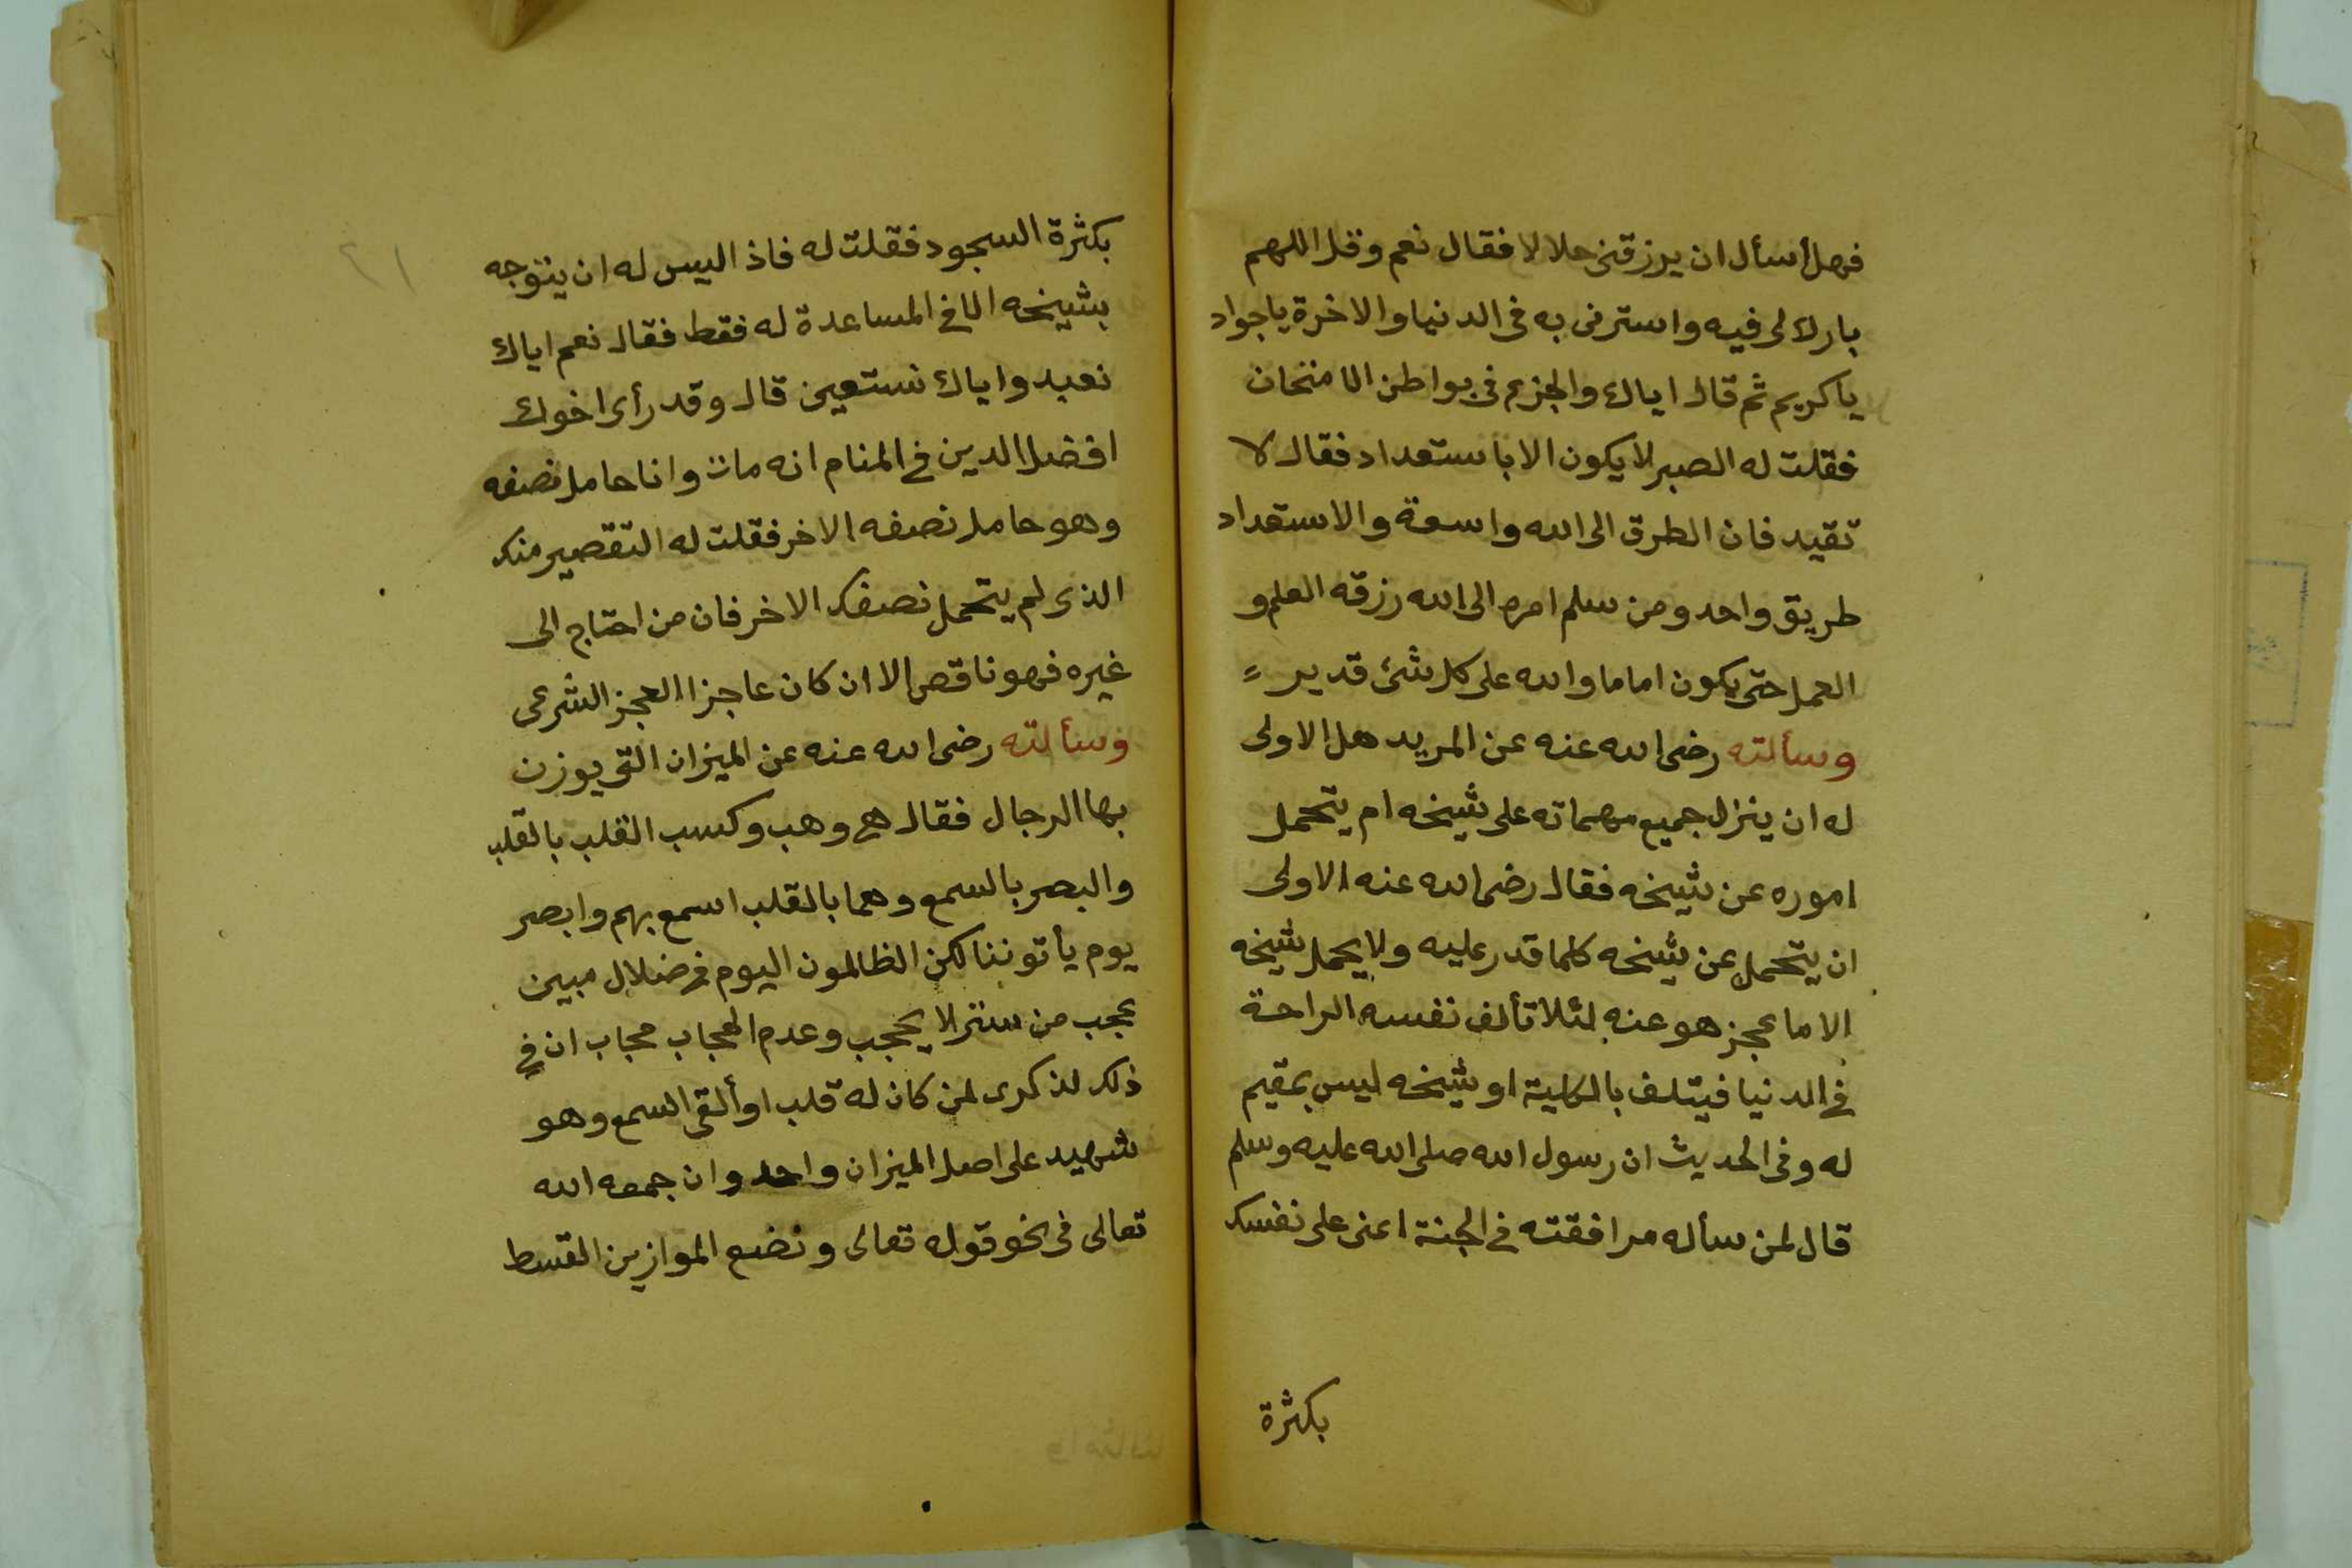 فهل أسأل ان يرزقنى حلالا فقال نعم وقل اللهم
بارك لى فيه واسترنى به فى الدنيا والاخرة ياجواد
ياكريم ثم قال اياك والجزع فى مواطن الامتحان
فقلت له الصبر لا يكون الا باستعداد فقال لا
تقيد فان الطرق الى الله واسعة والاستعداد
طريق واحد ومن سلم امره الى الله رزقه العلم و
العمل حتى يكون اماما والله على كل شئ قدير
وسألته رضى الله عنه عن المريد هل الاولى
له ان ينزل جميع مهماته على شيخه ام يتحمل
اموره عن شيخه فقال رضى الله عنه الاولى
ان يتحمل عن شيخه كلما قدر عليه ولا يحمل شيخه
الا ما عجز هو عنه لئلا تألف نفسه الراحة
فى الدنيا فيتلف بالكلية او شيخه ليس بمقيم
له وفى الحديث ان رسول الله صلى الله عليه وسلم
قال لمن سأله مرافقته فى الجنة اعنى على نفسك
بكثرة
١٦
بكثرة السجود فقلت له فاذ اليس له ان يتوجه
بشيخه الا فى المساعدة له فقط فقال نعم اياك
نعبد واياك نستعين قال وقد رأى اخوك
افضل الدين فى المنام انه مات وانا حامل نصفه
وهو حامل نصفه الاخر فقلت له التقصير منك
الذى لم يتحمل نصفك الاخر فان من احتاج الى
غيره فهو ناقص الا ان كان عاجزا العجز الشرعى
وسألته رضى الله عنه عن الميزان التى يوزن
بها الرجال فقال هى وهب وكسب القلب بالقلب
والبصر بالسمع وهما بالقلب اسمع بهم وابصر
يوم يأتوننا لكن الظالمون اليوم فى ضلال مبين
عجب من ستر لا يحجب وعدم الحجاب حجاب ان فى
ذلك لذكرى لمن كان له قلب او ألقى السمع وهو
شهيد على اصل الميزان واحد وان جمعه الله
تعالى فى نحو قوله تعالى ونضع الموازين القسط